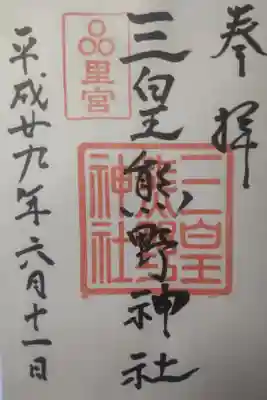 奉拝
三皇熊野神社
里宮
三皇
熊野
神社
平成廿九年六月十一日